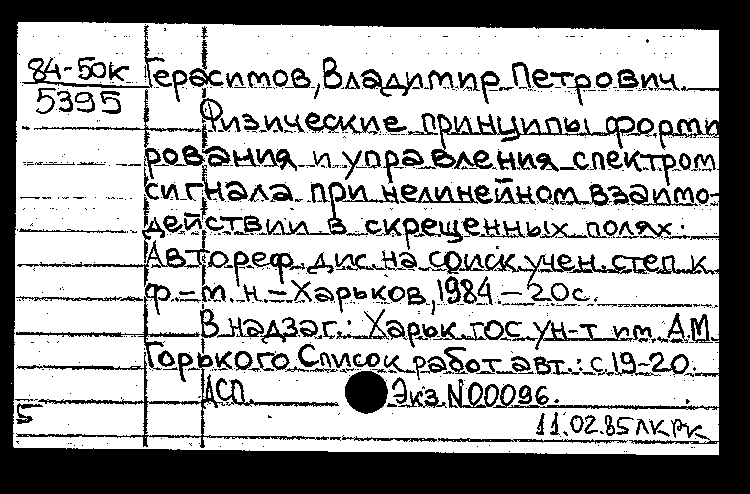 84-50к Герасимов, Владимир Петрович.
5395
Физические принципы форми
рования и управления спектром
сигнала при нелинейном взаимо-
действии в скрещенных полях:
Автореф. дис. на соиск. учен. степ. к.
ф.-м. н. - Харьков, 1984. - 20 с.
В надзаг.: Харьк. гос. ун-т им. А.М.
Горького. Список работ авт.: с. 19-20.
ДСП. Экз. N00096.
5
11.02.85 ЛК РК